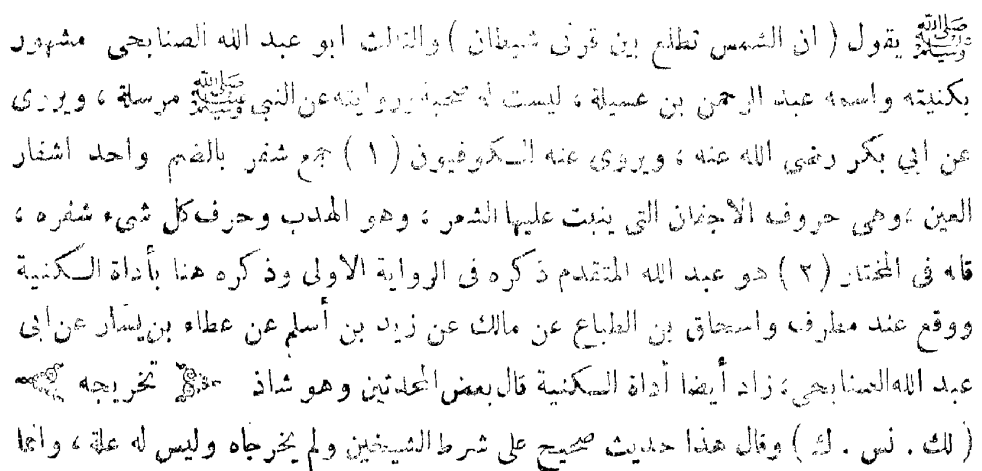 ﷺ يقول ( ان الشمس تطلع بين قرنى شيطان ) والثالث ابو عبد الله الصنابحى مشهور
بكنيته واسمه عبد الرحمن بن عسيلة ، ليست له صحبة وروايته عن النبى ﷺ مرسلة ، ويروى
عن ابى بكر رضى الله عنه ، ويروى عنه الكوفيون ( ١ ) جمع شفر بالضم واحد اشفار
العين ، وهى حروف الاجفان التى ينبت عليها الشعر ، وهو الهدب وحرف كل شىء شفره ،
قاله فى المختار ( ٢ ) هو عبد الله المتقدم ذكره فى الرواية الاولى وذكره هنا بأداة الكنية
ووقع عند مطرف واسحاق بن الطباع عن مالك عن زيد بن أسلم عن عطاء بن يسار عن ابى
عبد الله الصنابحى ، زاد أيضا أداة الكنية قال بعض المحدثين وهو شاذ تخريجه
( لك . نس . ك ) وقال هذا حديث صحيح على شرط الشيخين ولم يخرجاه وليس له علة ، وانما